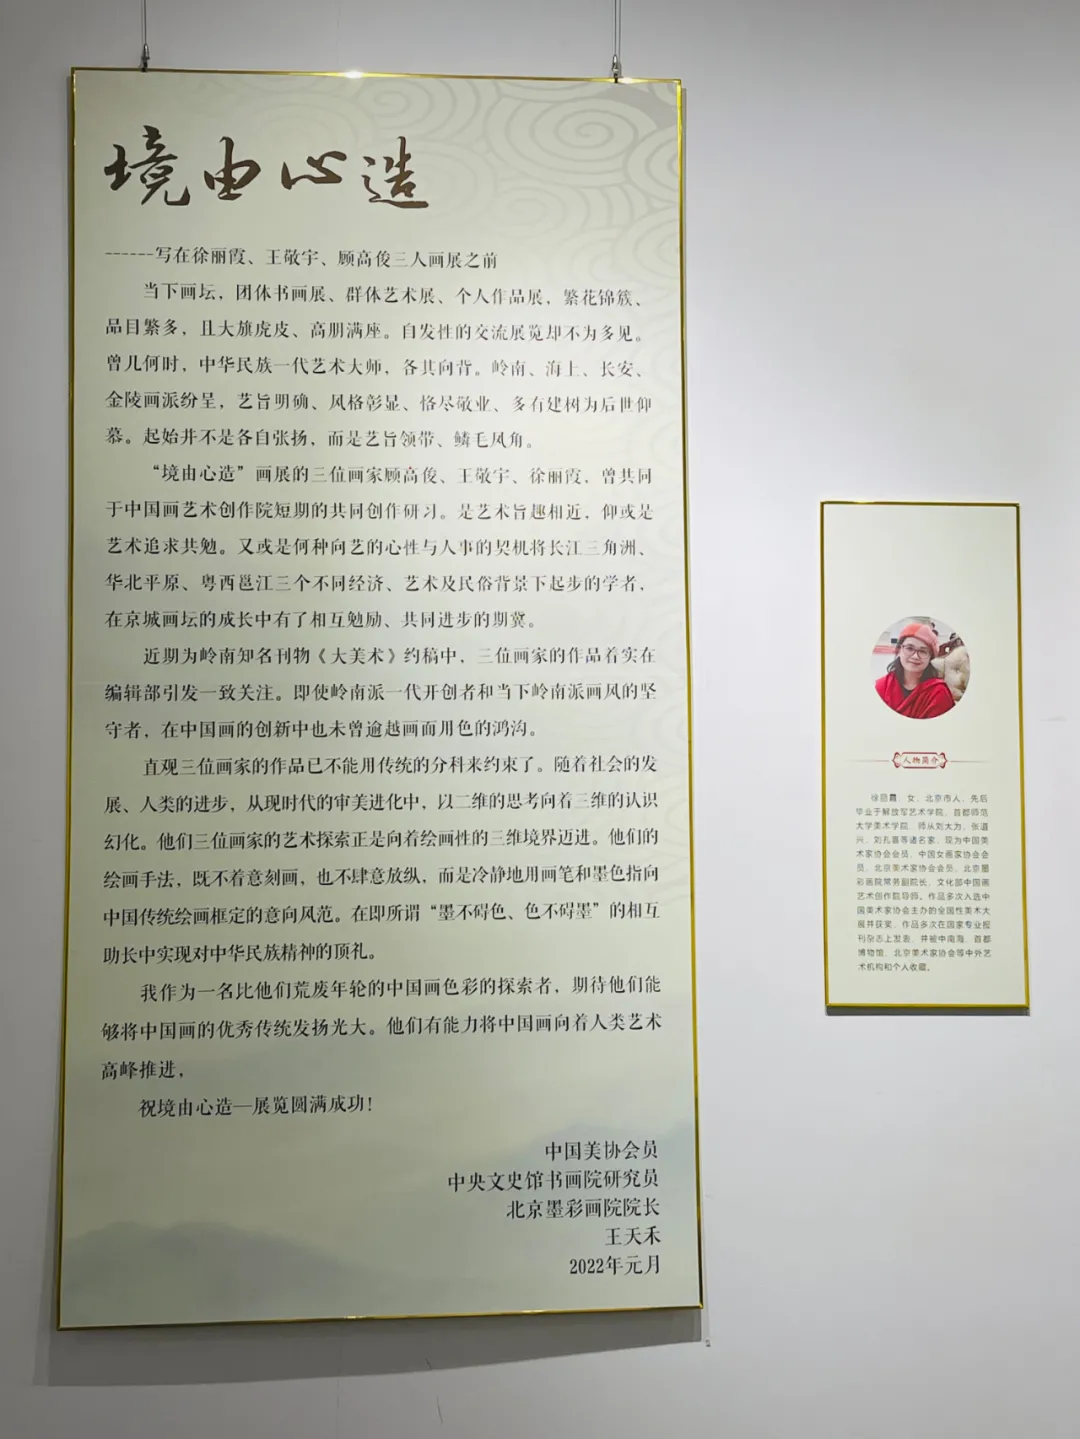 境由心造
------写在徐丽霞、王敬宇、顾高俊三人画展之前
当下画坛，团体书画展、群体艺术展、个人作品展，繁花锦簇、
品目繁多，且大旗虎皮、高朋满座。自发性的交流展览却不为多见。
曾几何时，中华民族一代艺术大师，各其向背。岭南、海上、长安、
金陵画派纷呈，艺旨明确、风格彰显、恪尽敬业、多有建树为后世仰
慕。起始并不是各自张扬，而是艺旨领带、鳞毛风角。
“境由心造”画展的三位画家顾高俊、王敬宇、徐丽霞，曾共同
于中国画艺术创作院短期的共同创作研习。是艺术旨趣相近，仰或是
艺术追求共勉。又或是何种向艺的心性与人事的契机将长江三角洲、
华北平原、粤西邕江三个不同经济、艺术及民俗背景下起步的学者，
在京城画坛的成长中有了相互勉励、共同进步的期冀。
近期为岭南知名刊物《大美术》约稿中，三位画家的作品着实在
编辑部引发一致关注。即使岭南派一代开创者和当下岭南派画风的坚
守者，在中国画的创新中也未曾逾越画而用色的鸿沟。
直观三位画家的作品已不能用传统的分科来约束了。随着社会的发
展、人类的进步，从现时代的审美进化中，以二维的思考向着三维的认识
幻化。他们三位画家的艺术探索正是向着绘画性的三维境界迈进。他们的
绘画手法，既不着意刻画，也不肆意放纵，而是冷静地用画笔和墨色指向
中国传统绘画框定的意向风范。在即所谓“墨不碍色、色不碍墨”的相互
助长中实现对中华民族精神的顶礼。
我作为一名比他们荒废年轮的中国画色彩的探索者，期待他们能
够将中国画的优秀传统发扬光大。他们有能力将中国画向着人类艺术
高峰推进，
祝境由心造—展览圆满成功！
中国美协会员
中央文史馆书画院研究员
北京墨彩画院院长
王天禾
2022年元月
人物简介
徐丽霞，女，北京市人，先后
毕业于解放军艺术学院、首都师范
大学美术学院，师从刘大为、张道
兴、刘孔喜等诸名家，现为中国美
术家协会会员，中国女画家协会会
员，北京美术家协会会员，北京墨
彩画院常务副院长，文化部中国画
艺术创作院导师。作品多次入选中
国美术家协会主办的全国性美术大
展并获奖，作品多次在国家专业报
刊杂志上发表，并被中南海、首都
博物馆、北京美术家协会等中外艺
术机构和个人收藏。